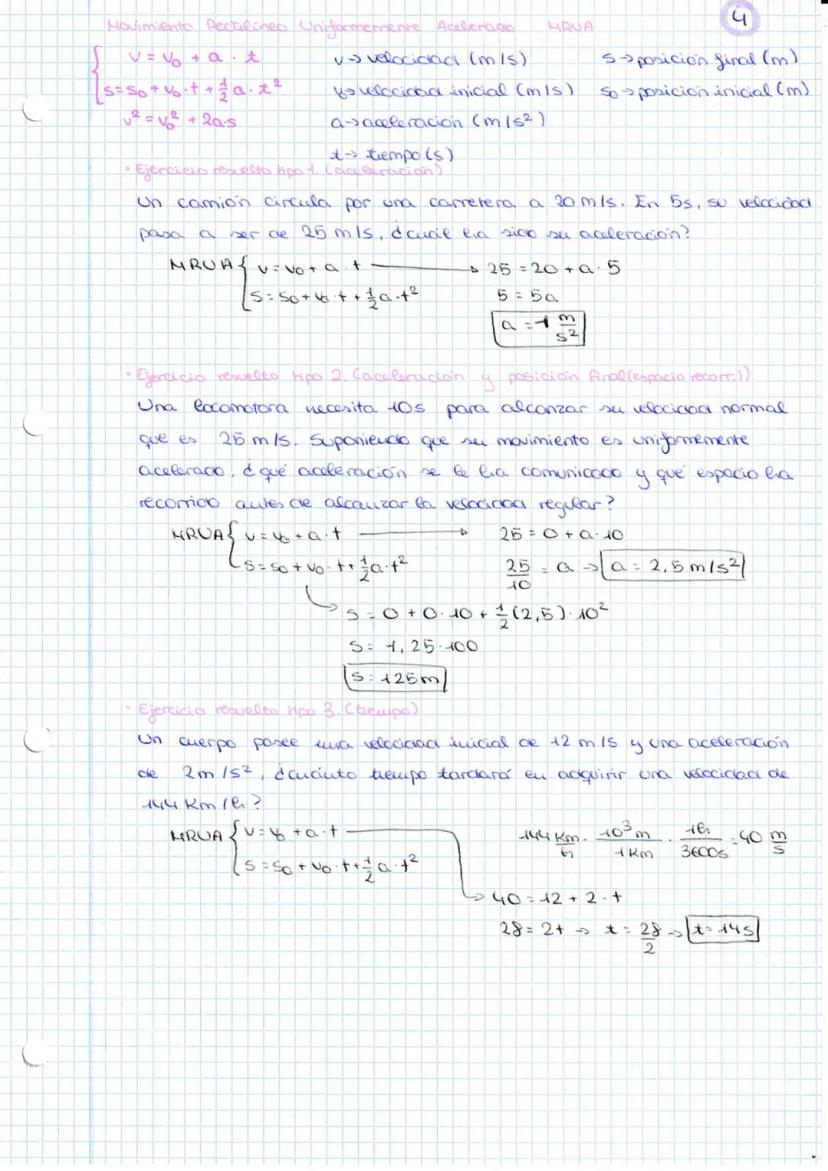 4
Movimiento Rectilíneo Uniformemente Acelerado MRUA
v = v₀ + a · t v → velocidad (m/s) s → posición final (m)
s = s₀ + v₀ · t + 1/2 a · t² v₀ → velocidad inicial (m/s) s₀ → posición inicial (m)
v² = v₀² + 2a·s a → aceleración (m/s²)
t → tiempo (s)
· Ejercicio resuelto tipo 1. (aceleración)
Un camión circula por una carretera a 20 m/s. En 5s, su velocidad
pasa a ser de 25 m/s, ¿cuál ha sido su aceleración?
MRUA { v = v₀ + a · t → 25 = 20 + a · 5
s = s₀ + v₀ · t + 1/2 a · t² 5 = 5a
a = 1 m/s²
· Ejercicio resuelto tipo 2. (aceleración y posición final (espacio recorr.))
Una locomotora necesita 10s para alcanzar su velocidad normal
que es 25 m/s. Suponiendo que su movimiento es uniformemente
acelerado, ¿qué aceleración se le ha comunicado y qué espacio ha
recorrido antes de alcanzar la velocidad regular?
MRUA { v = v₀ + a · t → 25 = 0 + a · 10
s = s₀ + v₀ · t + 1/2 a · t² 25/10 = a → a = 2,5 m/s²
s = 0 + 0 · 10 + 1/2 (2,5) · 10²
s = 1,25 · 100
s = 125 m
· Ejercicio resuelto tipo 3. (tiempo)
Un cuerpo posee una velocidad inicial de 12 m/s y una aceleración
de 2m/s², ¿cuánto tiempo tardará en adquirir una velocidad de
144 Km/h?
MRUA { v = v₀ + a · t 144 Km/h · 10³ m/1 Km · 1h/3600s = 40 m/s
s = s₀ + v₀ · t + 1/2 a · t²
→ 40 = 12 + 2 · t
28 = 2t → t = 28/2 → t = 14s